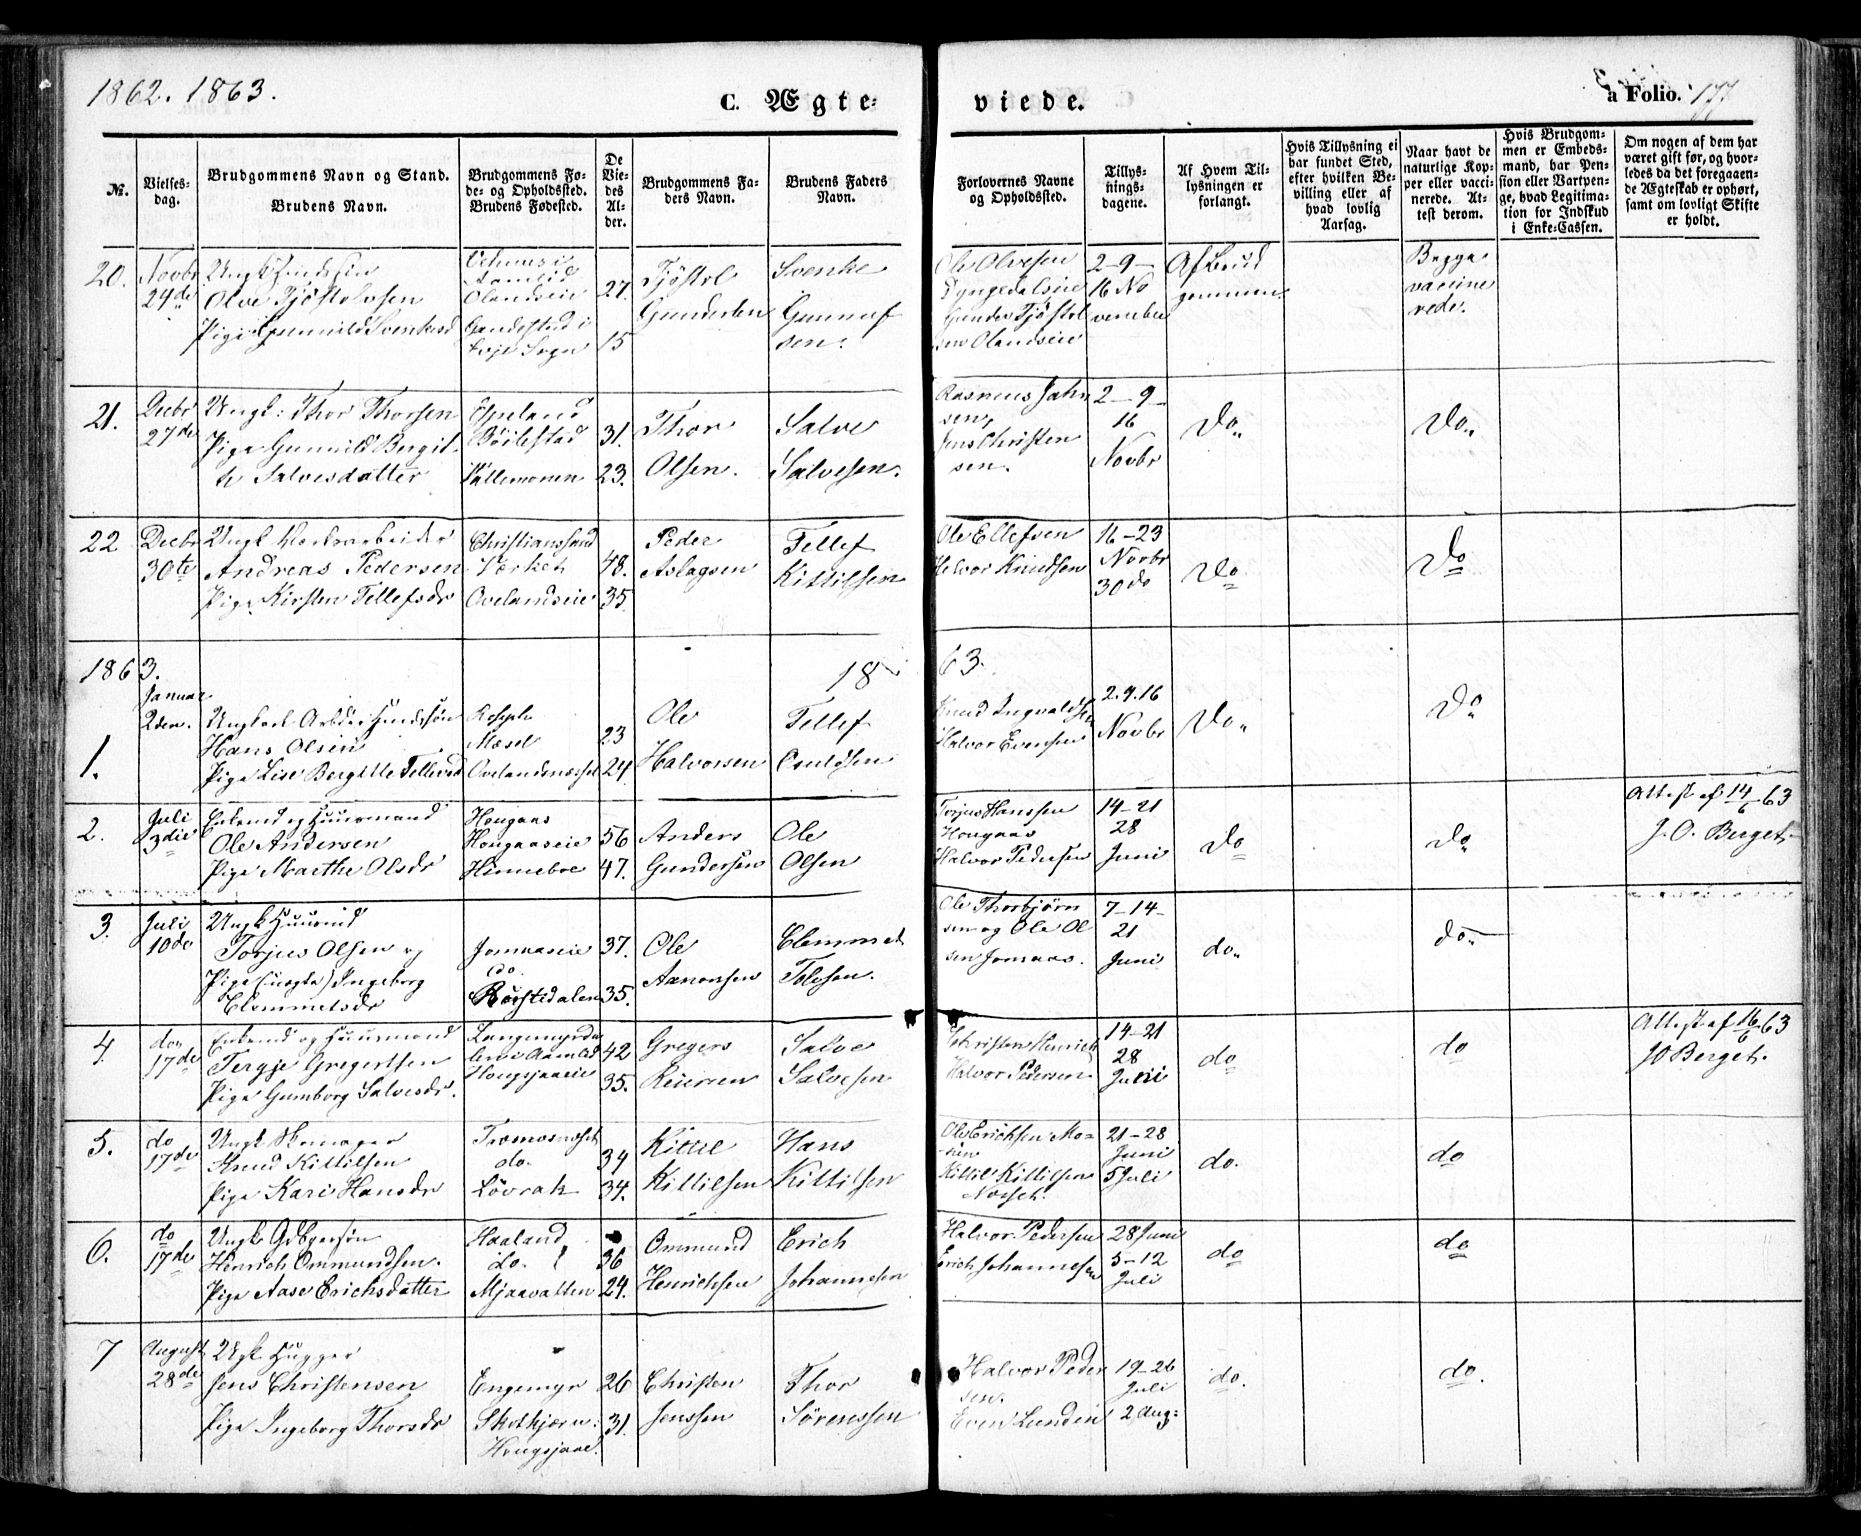 1862. 1863.
C. Ægte-
viede.
a Folio. 177
No.
Vielses-
dag.
Brudgommens Navn og Stand.
Brudens Navn.
Brudgommens Fø-
de- og Opholdssted.
Brudens Fødested.
De
Vie-
des
Al-
der.
Brudgommens Fa-
ders Navn.
Brudens Faders
Navn.
Forlovernes Navne
og Opholdssted.
Tillys-
nings-
dagene.
Af Hvem Til-
lysningen er
forlangt.
Hvis Tillysning ei
har fundet Sted,
efter hvilken Be-
villing eller af
hvad lovlig
Aarsag.
Naar havt de
naturlige Kop-
per eller vacci-
nerede. At-
test derom.
Hvis Brudgom-
men er Embeds-
mand, har Pen-
sion eller Vartpen-
ge, hvad Legitima-
tion for Indskud
i Enke-Cassen.
Om nogen af dem har
været gift før, og hvor-
ledes da det foregaaen-
de Ægteskab er ophørt,
samt om lovligt Skifte
er holdt.
20.
Novbr
24de
Olve Tjöstolvsen
Pige Gunnild Svenkesd
Olandseie
Gaudestad i
Evje Sogn
27.
15
Tjöstol
Gundersen
Svenke
Gunnuf
sen.
Ole Olvesen
Gunder Tjöstol
sen Olandseie
2-9-
16 No
vember
Af Brud
gommen.
Begge
vaccine
rede.
21.
Decbr
27de
Ungk: Thor Thorsen
Pige Gunnild Bergit
te Salvesdatter
Espeland
Böilestad
31.
23.
Thor
Olsen.
Salve
Salvesen.
Rasmus Jahn
sen,
Jens Christen
sen.
2-9-
16
Novbr
Do.
Do.
22
Decbr
30te
Andreas Pedersen
Pige Kirsten Tellefsdr
Christianssand
Værket
Ovelandseie
48.
35.
Peder
Aslagsen
Tellef
Kittilsen
Ole Ellefsen
Halvor Knudsen
16-23
Novbr
30 do
Do
Do
1863.
1863.
1.
Januar
2den.
Hans Olsen
Pige Lise Bergitte Tellevsd
Mæsel
23
24
Ole
Halvorsen
Tellef
Knud Ingvaldsen
Halvor Evensen
2.9.16
Novbr
Do.
Do
2.
Juli
3die
Enkemd og Huusmand
Ole Andersen
Pige Marthe Olsdr
Hougaas
Hougaaseie
Hinneboe
56
47.
Anders
Gundersen
Ole
Olsen
Torjus Hanssen
Hougaas
Halvor Pedersen
14-21
28
Juni
Do
Do
Attest af 14/6 63
J. O. Berget.
3.
Juli
10de
Ungk Huusmd
Torjus Olsen og
Pige (uægte) Ingeborg
Clemmetsdr
Jomaaseie
do.
Börstedalen
37.
35.
Ole
Aanonsen
Clemmet
Tolesen.
Ole Thorbjörn
sen og Ole Ol
sen Jomaas.
7-14-
21
Juni
do.
do.
4.
do.
17de
Enkemd og Huusmand
Tergje Gregertsen
Pige Gumborg Salvesdr.
42
35.
Gregers
Reiersen
Salve
Salvesen
Christen Henrich
Halvor Pedersen
14-21
28
Juni
do
do
Attest af 16/6 63
JO Berget.
5.
do
17de
Ungk
Knud Kittilsen
Pige Kari Hansdr
Tromosnæset
do.
Lövrak
34
34.
Kittil
Kittilsen
Hans
Kittilsen
Ole Erichsen Mo-
Kittil Kittilsen
Næset.
21-28
Juni
5 Juli
do.
do
6.
do
17de
Ungk Gdbrersön
Henrich Ommundsen.
Pige Aase Erichsdatter
Haaland
do.
Mjaavatten
36
24.
Ommund
Henrichsen
Erich
Johannesen
Halvor Pedersen
Erich Johannesen
28 Juni
5-12
Juli
do
do
7
August
28de
Ugk Hugger
Jens Christensen
Pige Ingeborg Thorsdr
Engemyr
26
31.
Christen
Jenssen
Thor
Sörenssen
Halvor Peder
sen.
Even Lunden
19-26
Juli
2 Aug:
do.
do.